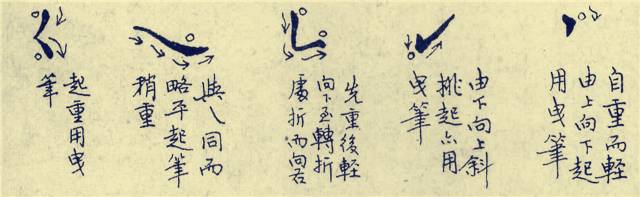 自重而軽
由上向下起
用曳筆
由下向上斜
挑起亦用
曳筆
先重後軽
向下至轉折
處折而向右
與乀同而
略平起筆
稍重
起重用曳
筆